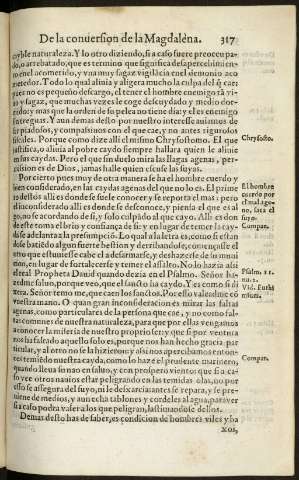 De la conuersion de la Magdalena. 317
ẽyble naturaleza. Y lo otro diziendo, si a caso fuere preocupa-
do, o arrebatado; que es termino que significa desapercibimien-
to en el acometido, y vna muy sagaz vigilãcia en el demonio aco
metedor. Todo lo qual aliuia y aligera mucho la culpa del q̃ cae:
pues no es pequeño descargo, el tener el hombre enemigo tã vi-
uo y sagaz, que muchas vezes le coge descuydado y medio dor-
mido; y mas que la orden de su pelea no tiene dia: y el es enemigo
intreguas. Y aun demas desto por nuestro interesse mismo auemos de
ser piadosos, y compassiuos con el que cae, y no antes rigurosos
fiscales. Porque como dize alli el mismo Chrysostomo. El que
justifica, o aliuia al pobre caydo siempre hallara quien le aliuie
en sus caydas. Pero el que sin duelo mira las llagas agenas, per-
mission es de Dios, jamas halle quien escuse las suyas.
Por cierto pues muy de otra manera se ha el hombre cuerdo y
bien considerado, en las caydas agenas del que no lo es. El prime
ro dellos alli es donde se suele conocer y se reporta el mas: pero
el desconsiderado alli es donde se desconoce, y piensa que el al
go, no se acordando de si, y solo culpado al que cayo. Alli es don
de este toma el brio y confiança de si: y en lugar de temer la cay-
da se adelanta a la presumpciõ. Lo qual a la letra es, como si estan
do batiẽdo algun fuerte bestion y derribandose, començasse el
amo que estuuiesse cabe el a desarmarse, y deshazerse de lo mun
cion, en lugar de fortalecerse y temer el assalto. No lo hazia assi
el real Propheta Dauid quando dezia en el Psalmo. Señor ha-
zedme saluo, porque veo, que el sancto ha caydo. Y es como si di
xera. Señor temo me, que caen los sanctos. Por esso valedme cõ
vuestra mano. O quan gran inconsideracion es mirar las faltas
agenas, como particulares de la persona que cae, y no como fal-
tas comunes de nuestra naturaleza, para que por ellas vengamos
a conocer la miseria de nuestro proprio ser: y que si por ventura
nos ha faltado aquello solo es, porque nos han hecho gracia par-
ticular, y al otro no se la hizieron: y assi nos apercibamos enton-
ces temiendo nuestra cayda, como lo haze el prudente marinero,
quando lleua su nao en saluo, y con prospero viento: que si a ca-
so vee otros nauios estar peligrando en las temidas olas, no por
esso se assegura del suyo, ni le descarcia: antes se repara, y se pre
uiene de medios, y aun echa tablones y cordeles al agua, para ver
si a caso podra valer a los que peligran, lastimandose dellos.
Demas desto has de saber, es condicion de hombres viles y ba
xos,
Chrysosto.
El hombre
cuerdo por
el mal age-
no, saca el
suyo.
Compar.
Psalm. 11.
nu. 2.
Vid. Euthi
mium.
Compar.